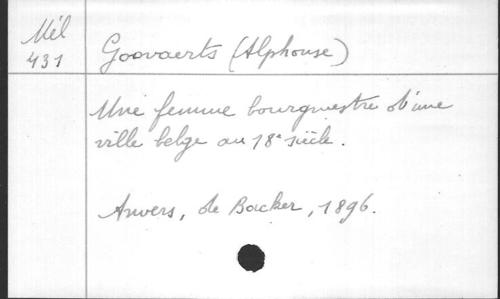 Mél
431
Goovaerts (Alphonse)
Une femme bourgmestre d'une
ville belge au 18e siècle.
Anvers, de Backer, 1896.